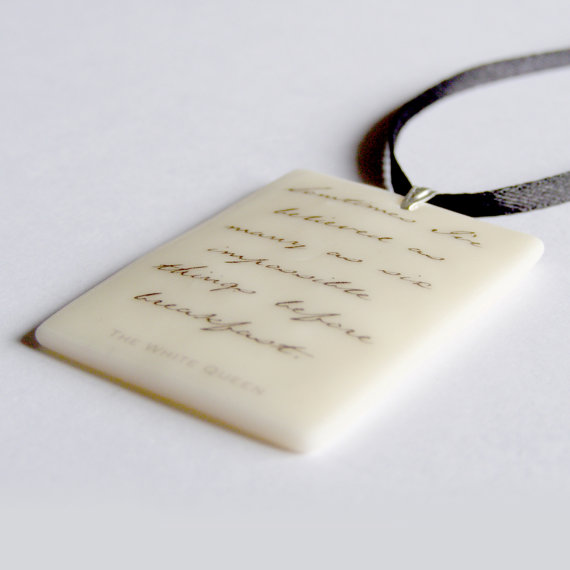 Sometimes I've
believed as
many as six
impossible
things before
breakfast.
THE WHITE QUEEN